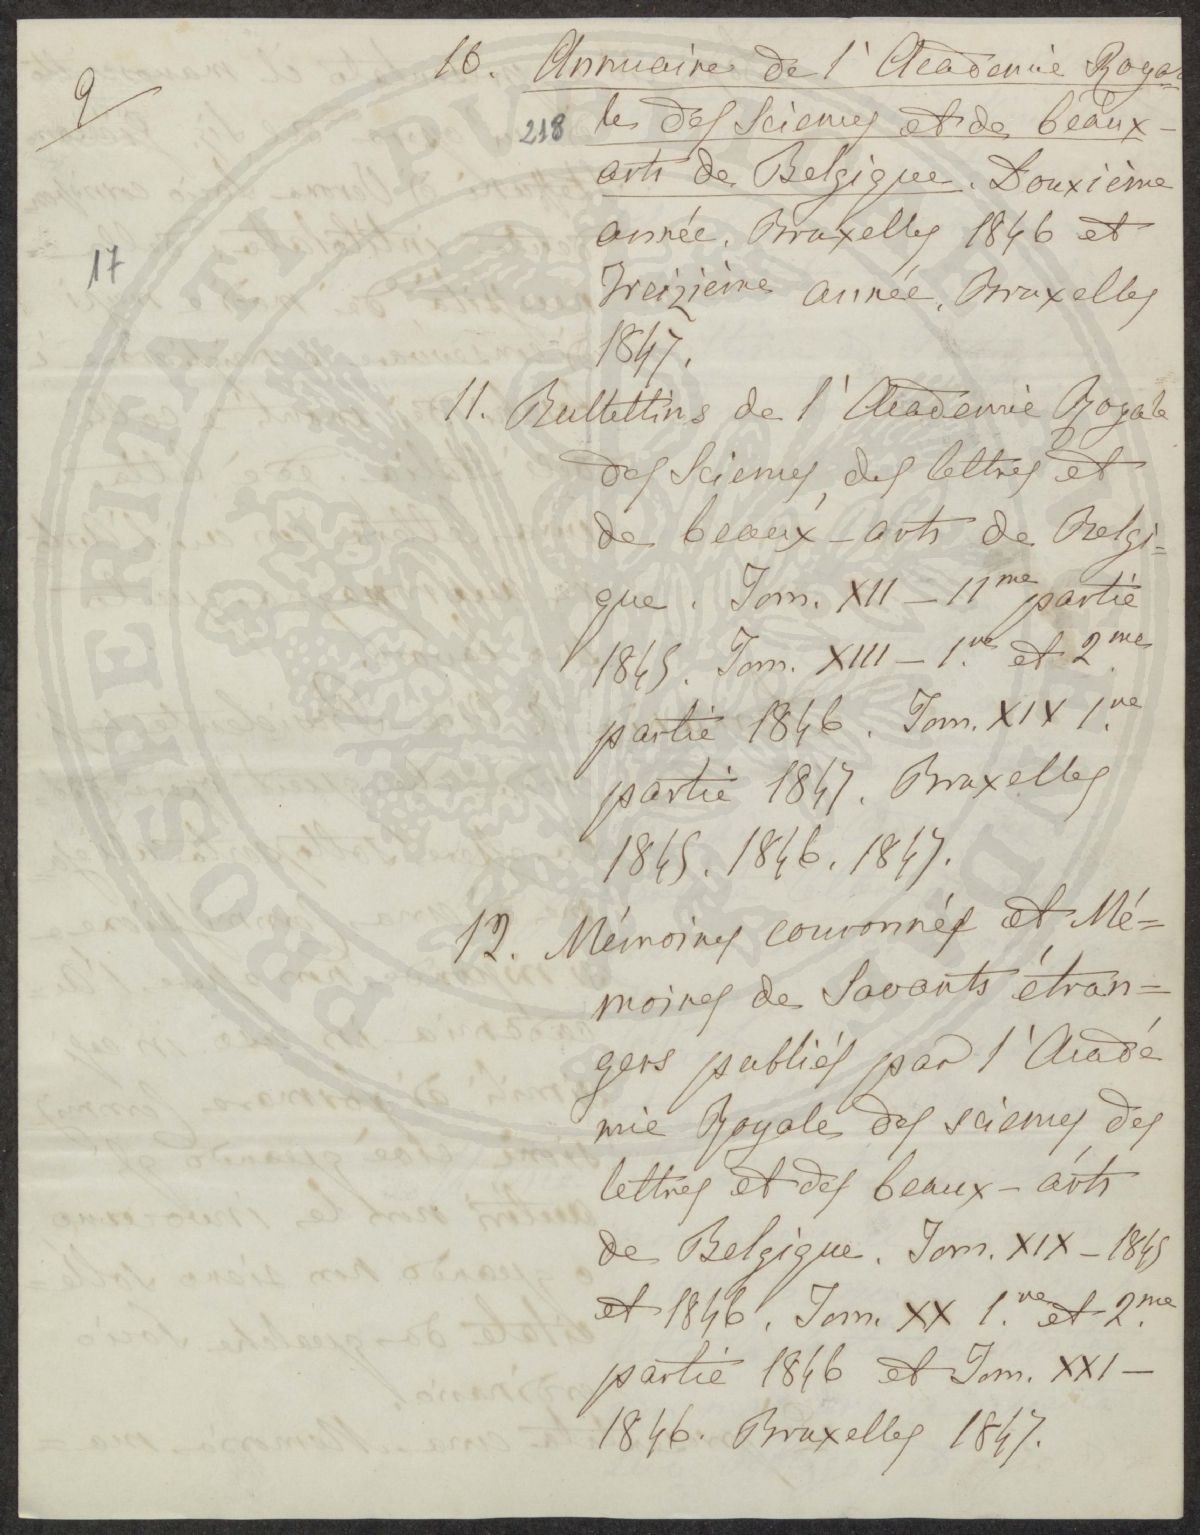 9
218
17
10. Annuaire de l'Academie Roya=
le des Sciences et de beaux-
arts de Belgique. Douxième
année. Bruxelles 1846 et
Treizième année. Bruxelles
1847.
11. Bullettins de l'Academie Royale
des Sciences, des lettres et
de beaux-arts de Belgi=
que. Tom. XII – 11me partie
1845. Tom. XIII – 1.re et 2.me
partie 1846. Tom. XIX 1.re
partie 1847. Bruxelles
1845. 1846. 1847.
12. Mémoires couronnés et Mé=
moires de Savants étran=
gers publiés par l'Acadé
mie Royale des sciences des
lettres et des beaux-arts
de Belgique. Tom. XIX – 1845
et 1846. Tom. XX 1.re et 2.me
partie 1846 et Tom. XXI –
1846. Bruxelles 1847.